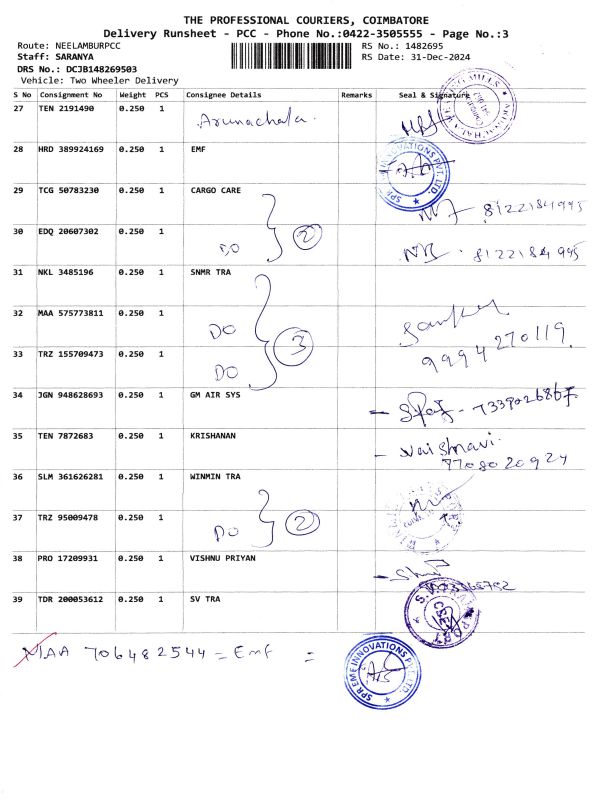 THE PROFESSIONAL COURIERS, COIMBATORE
Delivery Runsheet - PCC - Phone No.:0422-3505555 - Page No.:3
Route: NEELAMBURPCC RS No.: 1482695
Staff: SARANYA RS Date: 31-Dec-2024
DRS No.: DCJB148269503
Vehicle: Two Wheeler Delivery
S No Consignment No Weight PCS Consignee Details Remarks Seal & Signature
27 TEN 2191490 0.250 1 Arunachala
28 HRD 389924169 0.250 1 EMF
SPR EME INNOVATIONS PVT. LTD.
29 TCG 50783230 0.250 1 CARGO CARE
8122184995
30 EDQ 20607302 0.250 1 DO 2
8122184995
31 NKL 3485196 0.250 1 SNMR TRA
32 MAA 575773811 0.250 1 DO
3
9994270119
33 TRZ 155709473 0.250 1 DO
34 JGN 948628693 0.250 1 GM AIR SYS
35 TEN 7872683 0.250 1 KRISHANAN Vaishnavi
7708020924
36 SLM 361626281 0.250 1 WINMIN TRA
37 TRZ 95009478 0.250 1 DO 2
38 PRO 17209931 0.250 1 VISHNU PRIYAN
39 TDR 200053612 0.250 1 SV TRA
MAA 706482544 = EMF =
SPR EME INNOVATIONS PVT. LTD.